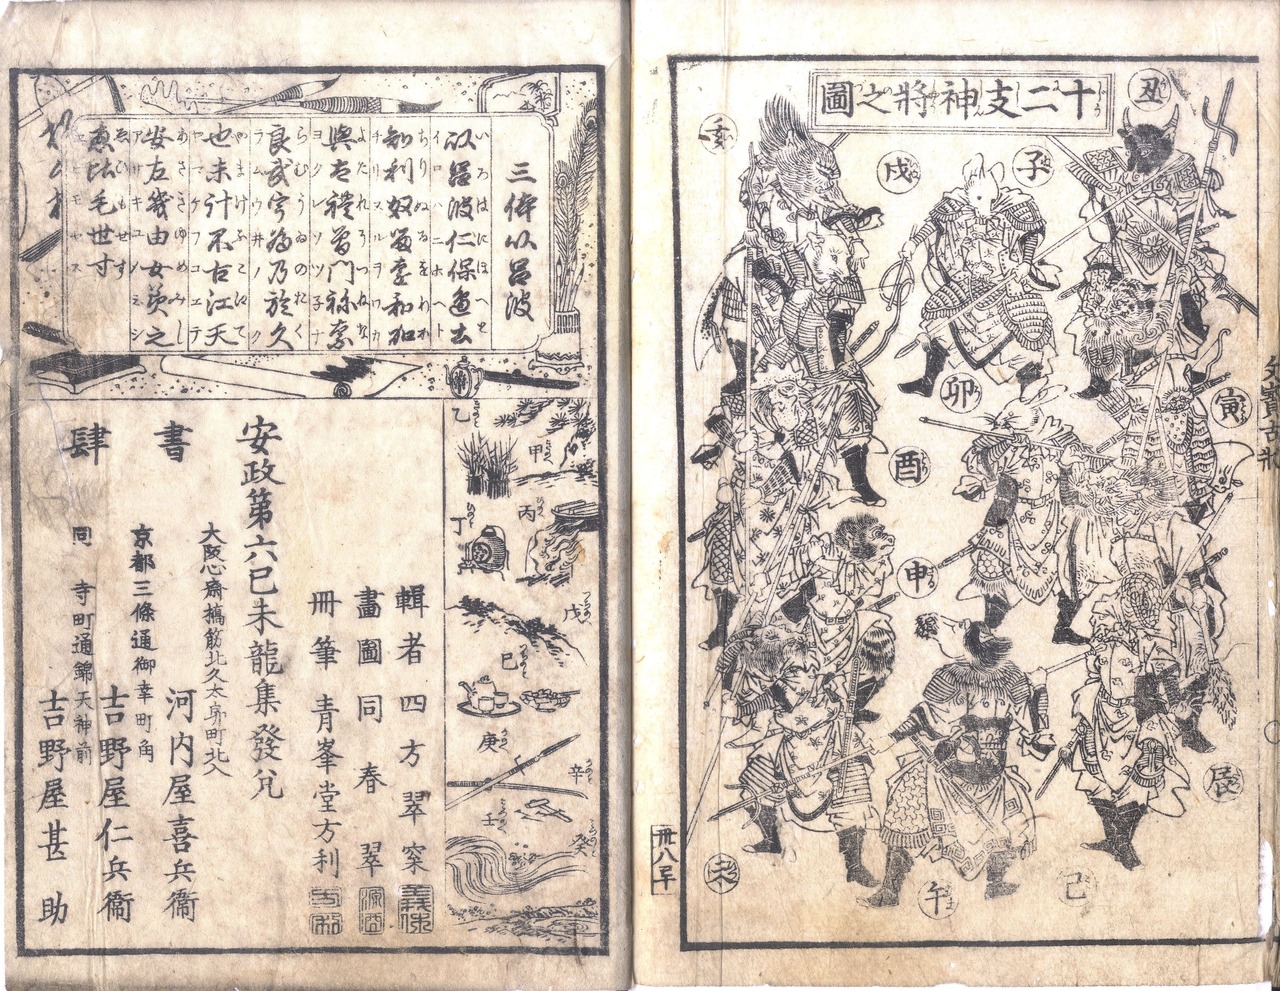 十二支神將之圖
丑
子
戌
亥
寅
卯
酉
申
辰
巳
午
未
卅八卒
三体以呂波
以呂波仁保邊止
いろはにほへと
イロハニホヘト
知利奴留遠和加
ちりぬるをわか
チリヌルヲワカ
與太禮曾門祢奈
よたれそつねな
ヨタレソツ子ナ
良武宇為乃於久
らむうゐのおく
ラムウ井ノオク
也末計不己江天
やまけふこえて
ヤマケフコエテ
安左幾由女美之
あさきゆめみし
アサキユメミシ
恵比毛世寸
ゑひもせす
ヱヒモセス
甲
乙
丙
丁
戊
己
庚
辛
壬
癸
輯者四方翠穼
畫圖同春翠
冊筆青峯堂方利
安政第六己未龍集發兌
書肆
大阪心齋橋筋北久太郎町北入
河内屋喜兵衞
京都三條通御幸町角
吉野屋仁兵衞
同 寺町通錦天神前
吉野屋甚助